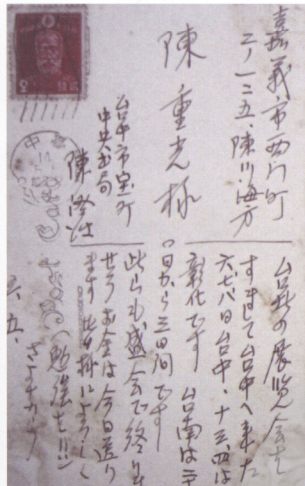 嘉義市西門町
二ノ一二五、陳川海方
陳重光様
台中市宝町
中央書局
陳澄波
台北の展覧会を
すまして台中へ来た
六七八日台中、十三、四は
彰化です 台南は二
日から三日間です
此らも盛会で終りま
せう お金は今日送り
ます
(勉強せ!!)
さようなら
六、五、